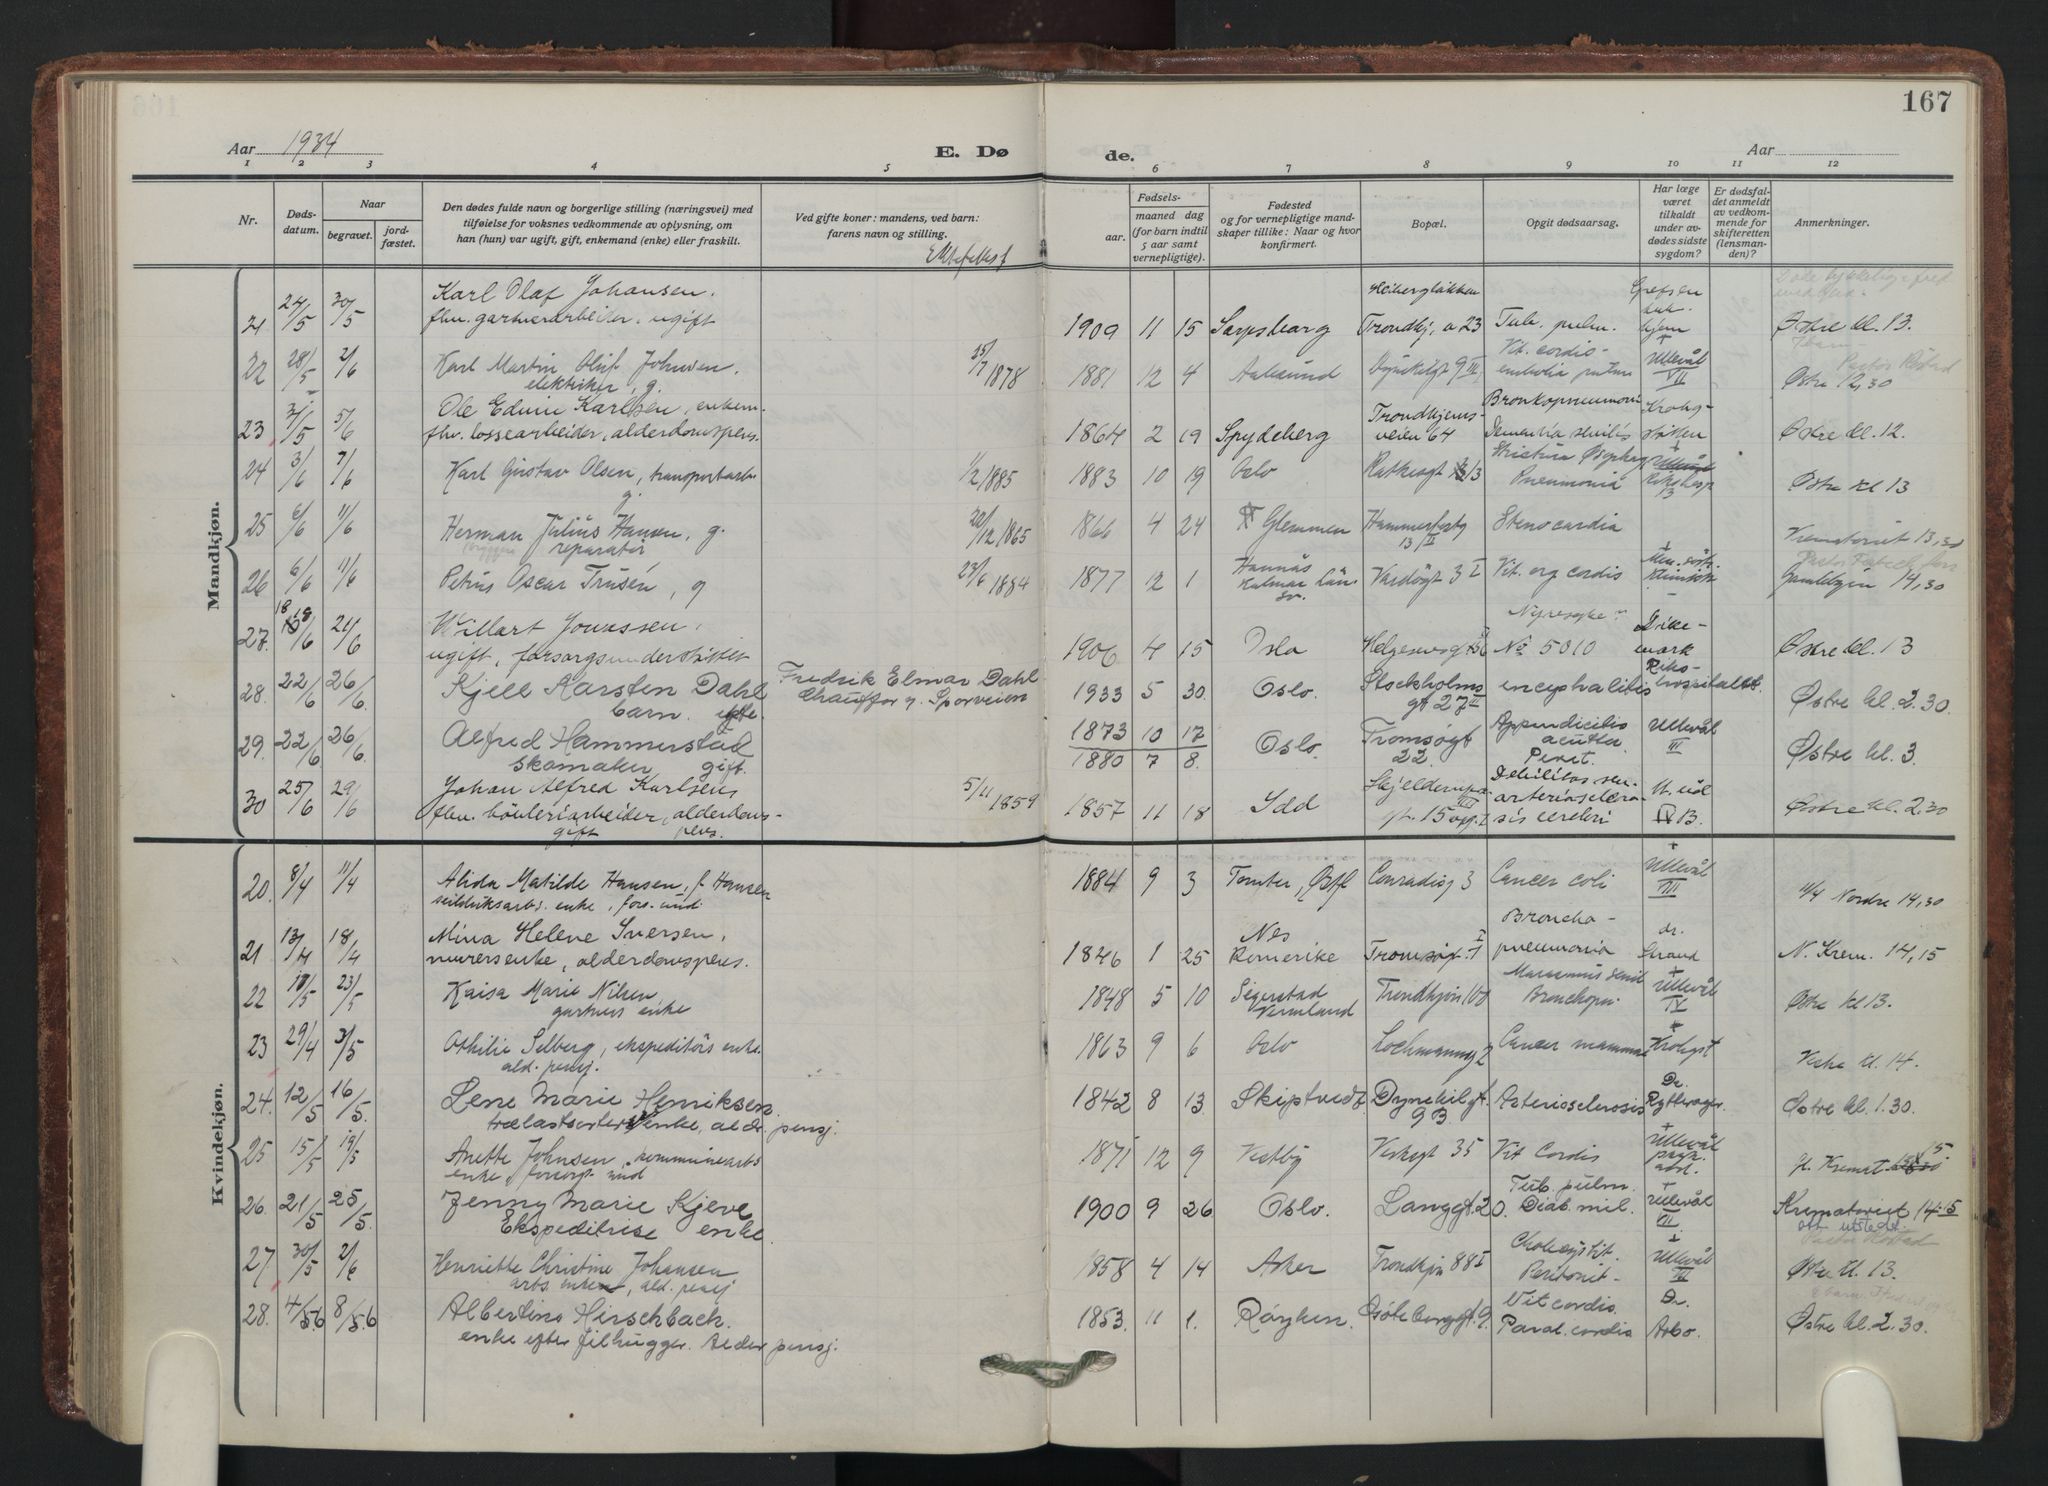 167
Aar 1934
E. Dø
de.
Aar
1 2 3 4 5 6 7 8 9 10 11 12
Nr.
Døds-
datum.
Naar
begravet.
jord-
fæstet.
Den dødes fulde navn og borgerlige stilling (næringsvei) med
tilføielse for voksnes vedkommende av oplysning, om
han (hun) var ugift, gift, enkemand (enke) eller fraskilt.
Ved gifte koner: mandens, ved barn:
farens navn og stilling.
Fødsels-
aar.
maaned dag
(for barn indtil
5 aar samt
vernepligtige).
Fødested
og for vernepligtige mand-
skaper tillike: Naar og hvor
konfirmert.
Bopæl.
Opgit dødsaarsag.
Har læge
været
tilkaldt
under av-
dødes sidste
sygdom?
Er dødsfal-
det anmeldt
av vedkom-
mende for
skifteretten
(lensman-
den)?
Anmerkninger.
Mandkjøn.
21 24/5 30/5 Karl Olaf Johansen,
fhv. gartnerarbeider, ugift
1909 11 15 Sarpsborg Trondhj. v 23 Tub. pulm. Grefsen Østre kl. 13.
22 28/5 2/6 Karl Martin Oluf Johnsen,
elektriker, g.
25/7 1878 1881 12 4 Aalesund Dynekilgt 9 III Vit. cordis - embolia pulm Ullevål VII Østre 12,30
23 31/5 5/6 Ole Edvin Karlsen, enkem.
fhv. lossearbeider, alderdomspens.
1864 2 19 Spydeberg Trondhjems-
veien 64 Bronkopneumoni
Dementia senilis Krohg-
støtten Østre kl. 12.
24 3/6 7/6 Karl Gustav Olsen, transportarb.
g.
1/2 1885 1883 10 19 Oslo Rathkesgt 13 Pneumonia Ullevål
Rikshosp Østre kl 13
25 6/6 11/6 Herman Julius Hansen, g.
reparatør
20/12 1865 1866 4 24 Glemmen Hammerfestg
13 II Stenocardia Krematoriet 13,30
26 6/6 11/6 Petrus Oscar Trusén, g
23/6 1884 1877 12 1 Kalmar Län
Sv. Vardøgt 3 I Vit. org cordis Gamlebyen 14,30
27. 18/6 21/6 Willart Jonassen,
ugift, forsorgsunderstøttet
1906 4 15 Oslo Helgesensgt Nyresyke
No 5010 Dike-
mark Østre kl. 13
28. 22/6 26/6. Kjell Karsten Dahl
barn.
Fredrik Elmar Dahl
Chauffør v. Sporveien
1933 5 30. Oslo. Stockholms
gt 27 II encephalitis Riks-
hospitalet. Østre kl. 2.30.
29. 22/6 26/6. Alfred Hammerstad
skomaker gift.
1873 10 17
1880 7 8. Oslo. Tromsøgt
22. Appendicitis
acutta.
Perit. Ullevål
III Østre kl. 3.
30 25/6 29/6 Johan Alfred Karlsen
fhv. høvleriarbeider, alderdoms-
gift pens.
5/11 1859 1857 11 18 Idd Skjelderups
gt. 15 opp. I Debilitas sen.
arteriosclero-
sis cerebri U.vål
IX B. Østre kl. 2.30
Kvindekjøn.
20. 8/4 11/4 Alida Matilde Hansen, f. Hansen
seildugsarb. enke, fors. und.
1884 9 3 Tomter, Østf Conradisg 3 Cancer coli Ullevål
VIII 11/4 Nordre 14,30
21 13/4 18/4 Mina Helene Iversen,
murersenke, alderdomspens.
1846 1 25 Nes
Romerike Tromsøgt. 1 Broncho-
pneumonia dr.
Strand N. Krem. 14,15
22 18/5 23/5 Kaisa Marie Nilsen
gartners enke
1848 5 10 Segerstad
Vermland Trondhjv 100 Marasmus senil
Bronchopn. Ullevål
IV Østre kl 13.
23 29/4 3/5 Othilie Selberg, ekspeditørs enke.
ald. pensj.
1863 9 6 Oslo Lochmannsg 2 Cancer mammae Krohgst Vestre kl. 14.
24. 12/5 16/5. Lene Marie Henriksen.
trælastsorterer enke, alder pensj.
1842 8 13. Skiptvedt Dynekilgt.
9 B Arteriosclerosis Dr.
Rytterager. Østre kl. 1.30.
25 15/5 19/5 Anette Johnsen, kommunearb
enke, forsorgs und
1871 12 9 Vestby Viksgt 35 Vit Cordis Ullevål
psyk.
avd. Kremat 15.
26. 21/5 25/5. Jenny Marie Kjeve
Ekspeditrise enke.
1900 9 26 Oslo. Langgt. 20. Tub. pulm.
Diab. mil. Ullevål
VII. Krematoriet 14.15
att. utstedt.
27 30/5 2/6 Henriette Christine Johansen
arb. enke, ald. pensj
1858 4 14 Asker Trondhjv 88 I Cholecystit.
Peritonit - Ullevål Østre kl. 13.
28. 4/6 8/6 Albertine Hirschbach.
enke efter filhugger. Alder pensj.
1853. 11 1. Røyken. Gøteborggt. 9. Vit cordis.
Paral. cordis Dr.
Arbo. Østre kl. 2.30.